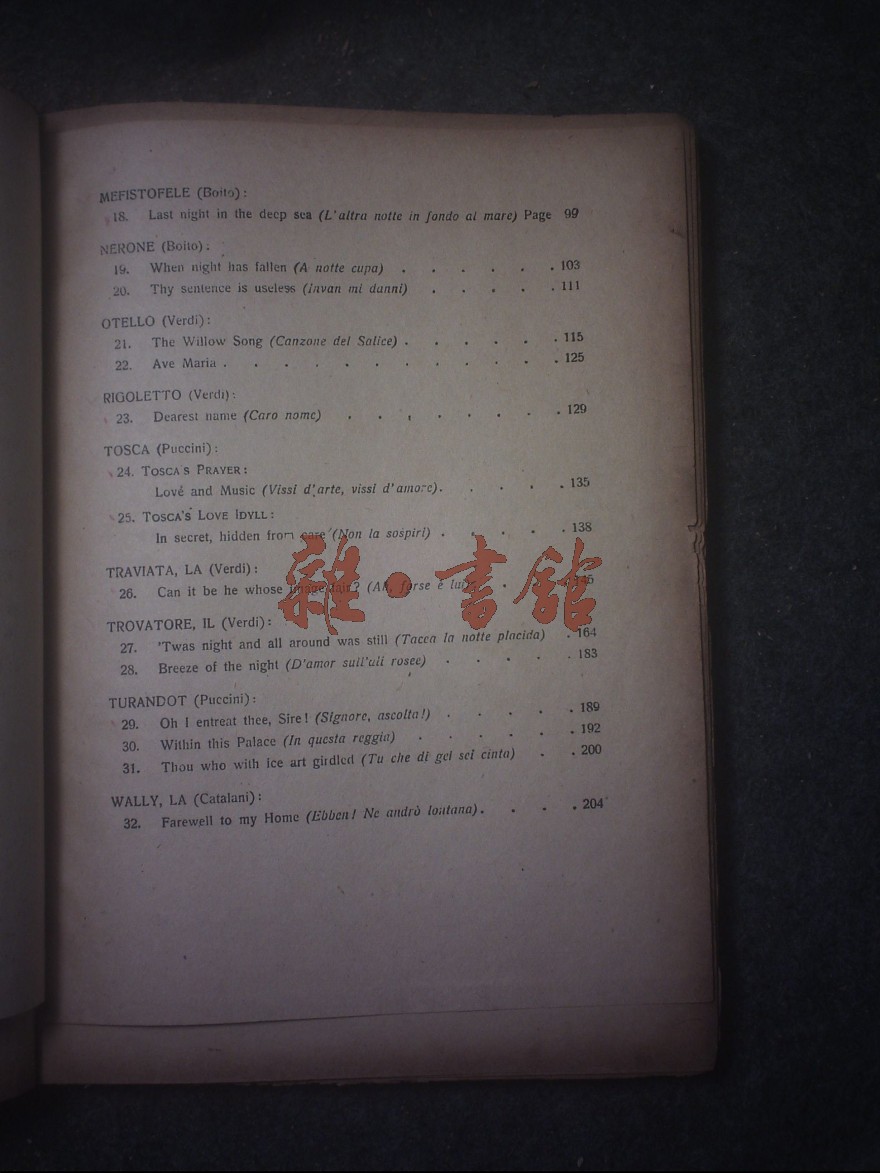 MEFISTOFELE (Boito):
18. Last night in the deep sea (L'altra notte in fondo al mare) Page 99
NERONE (Boito):
19. When night has fallen (A notte cupa) . . . . . . 103
20. Thy sentence is useless (Invan mi danni) . . . . . 111
OTELLO (Verdi):
21. The Willow Song (Canzone del Salice) . . . . . . 115
22. Ave Maria . . . . . . . . . . . . 125
RIGOLETTO (Verdi):
23. Dearest name (Caro nome) . . . . . . . . 129
TOSCA (Puccini):
24. TOSCA'S PRAYER:
Love and Music (Vissi d'arte, vissi d'amore). . . . . 135
25. TOSCA'S LOVE IDYLL:
In secret, hidden from care (Non la sospiri) . . . . . 138
TRAVIATA, LA (Verdi):
26. Can it be he whose image fair? (Ah, forse è lui) . . .
TROVATORE, IL (Verdi):
27. 'Twas night and all around was still (Tacea la notte placida) . 164
28. Breeze of the night (D'amor sull'ali rosee) . . . . . 183
TURANDOT (Puccini):
29. Oh I entreat thee, Sire! (Signore, ascolta!) . . . . . 189
30. Within this Palace (In questa reggia) . . . . . . 192
31. Thou who with ice art girdled (Tu che di gel sei cinta) . . 200
WALLY, LA (Catalani):
32. Farewell to my Home (Ebben! Ne andrò lontana). . . . 204
雜·書館